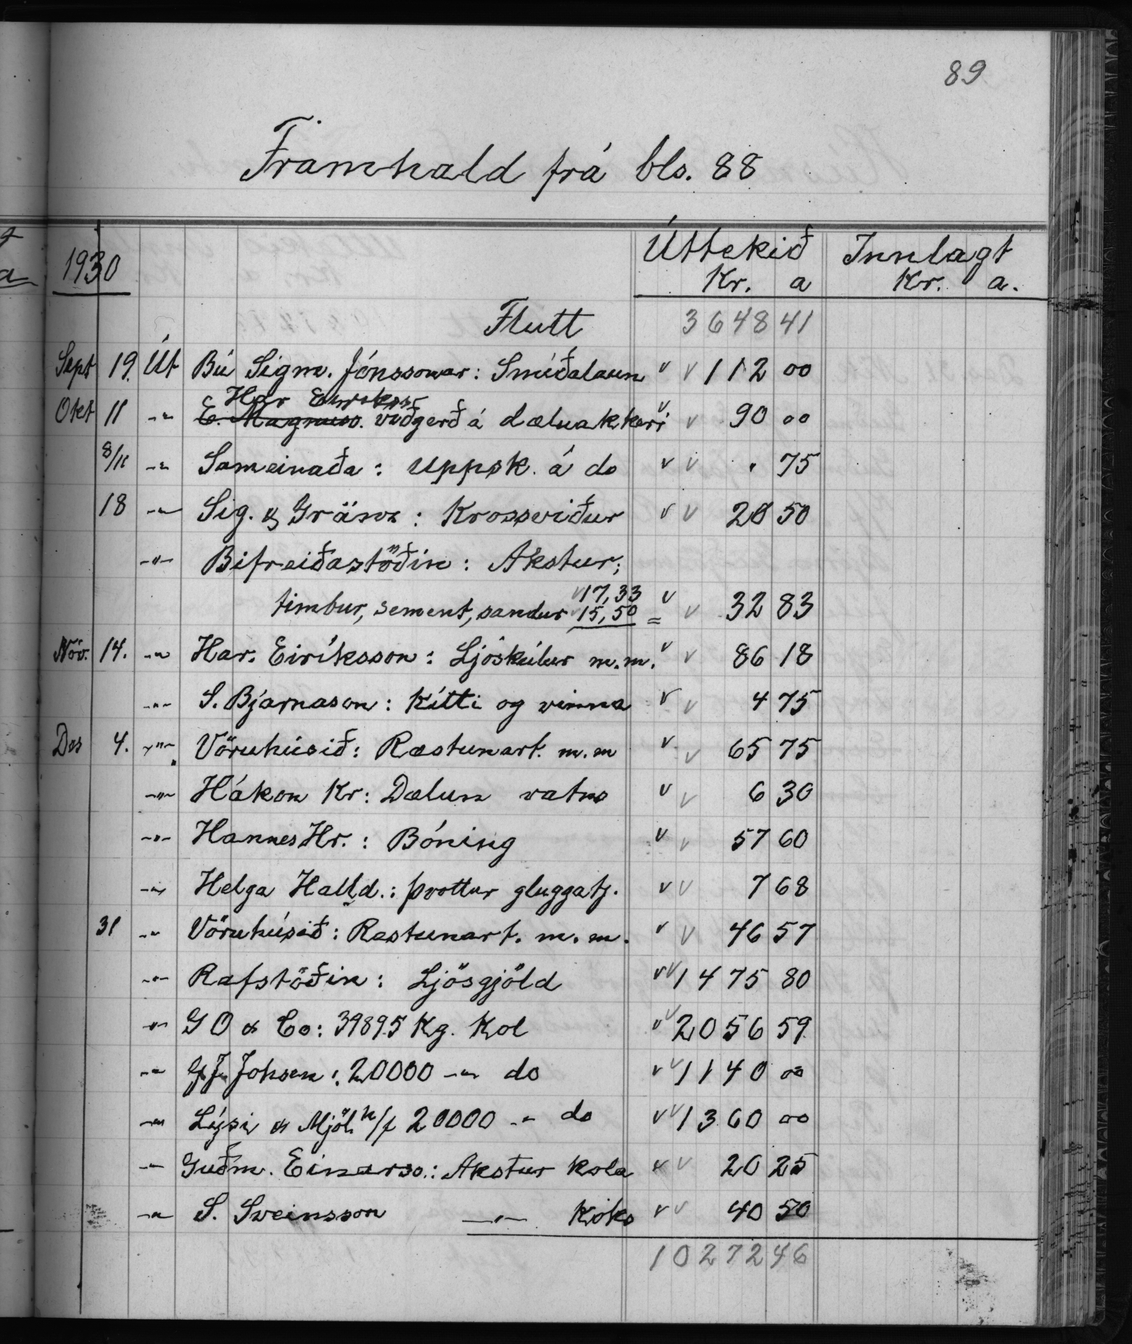 89
Framhald frá bls. 88
1930 Úttekið Innlagt
Kr. a Kr. a.
Flutt 3648 41
Sept 19. Út Bú Sigm. Jónssonar: Smíðalaun v v 112 00
Har Eirikss
Okt 11 -"- E. Magnuss. viðgerð á dæluakkeri v v 90 00
8/11 -"- Sameinaða: Uppsk. á do v v . 75
18 -"- Sig. & Gränz: Krossviður v v 28 50
-"- Bifreiðastöðin: Akstur;
v 17,33
timbur, sement, sandur v 15,50 = v v 32 83
Nóv. 14. -"- Har. Eiríksson: Ljóskúlur m.m. v v 86 18
-"- S. Bjarnason: Kítti og vinna v v 4 75
Des 4. -"- Vöruhúsið: Ræstunart. m.m v v 65 75
-"- Hákon Kr: Dælun vatns v v 6 30
-"- Hannes Hr.: Bóning v v 57 60
-"- Helga Halld.: þvottur gluggatj. v v 7 68
31 -"- Vöruhúsið: Ræstunart. m.m. v v 46 57
-"- Rafstöðin: Ljósgjöld v v 1475 80
-"- G O & Co: 39895 Kg. Kol v v 2056 59
-"- G. J. Johsen: 20000 -"- do v v 1140 00
-"- Lýsi & Mjöl h/f 20000 -"- do v v 1360 00
-"- Guðm. Einarss.: Akstur kola v v 20 25
-"- S. Sveinsson -"- Koks v v 40 50
10272 46